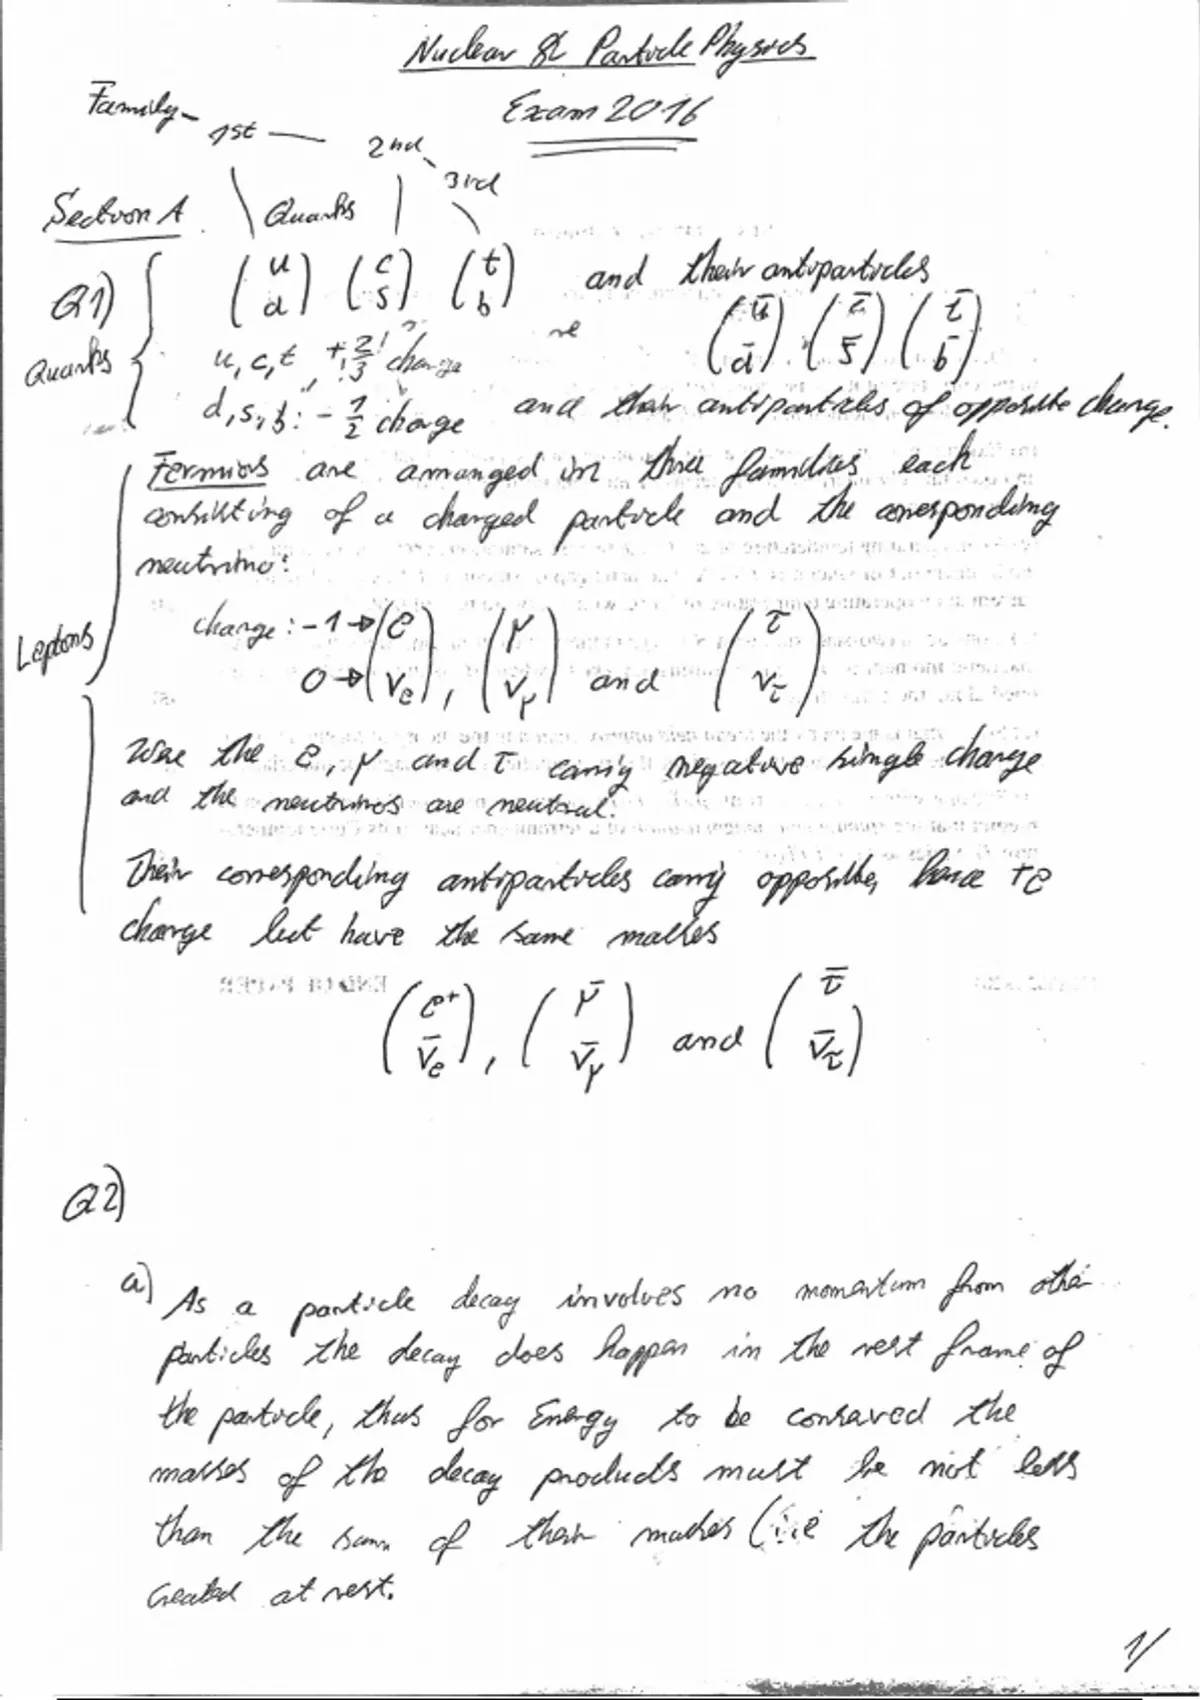 Nuclear & Particle Physics
Exam 2016
Family - 1st — 2nd - 3rd
Section A
Quarks
Q1)
Quarks
(u d) (c s) (t b) and their antiparticles
(ū d̄) (c̄ s̄) (t̄ b̄)
u, c, t + 2/3 charge
d, s, b : - 1/2 charge and their antiparticles of opposite charge.
Leptons
Fermios are arranged in three families each
consisting of a charged particle and the corresponding
neutrino:
charge : -1 → (e
0 → νe), (μ νμ) and (τ ντ)
Were the e, μ and τ carry negative single charge
and the neutrinos are neutral.
Their corresponding antiparticles carry opposite, hence +e
charge but have the same masses
(e⁺ ν̄e), (μ̄ ν̄μ) and (τ̄ ν̄τ)
END OF PAPER
Q2)
a) As a particle decay involves no momentum from other
particles the decay does happen in the rest frame of
the particle, thus for Energy to be conserved the
masses of the decay products must be not less
than the sum of their masses (i.e the particles
created at rest.
1/